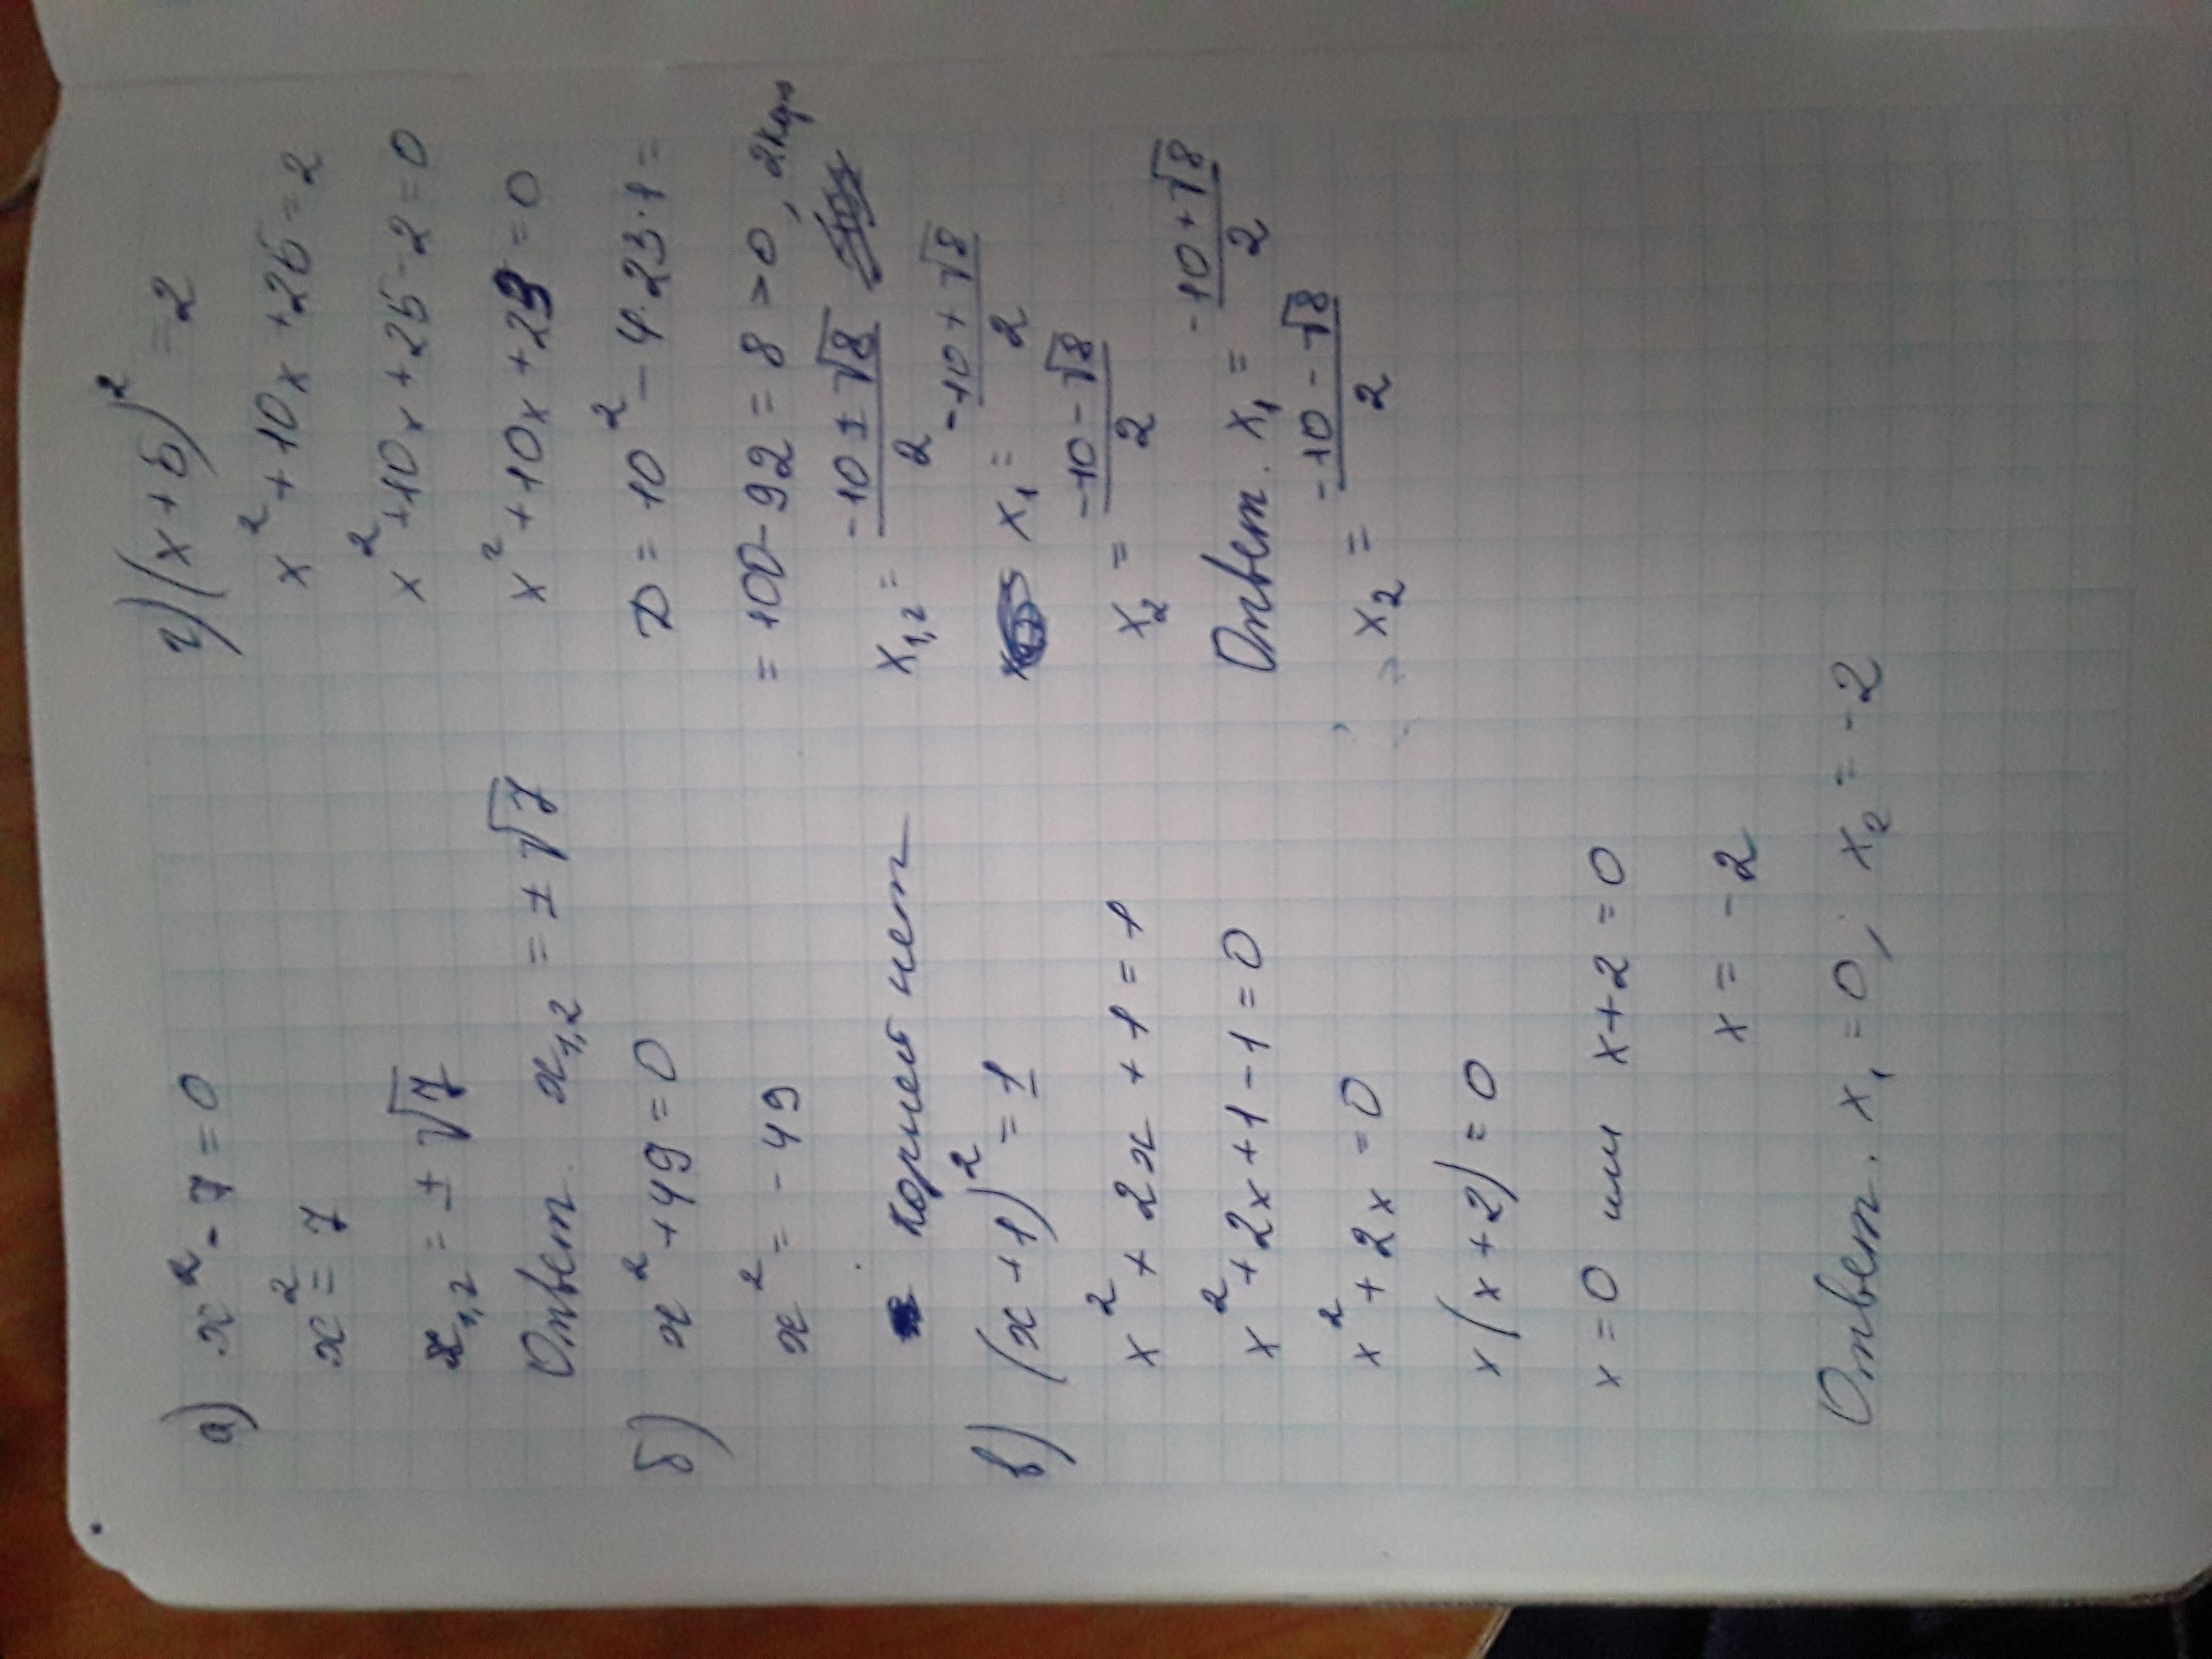 а) x² - 7 = 0
x² = 7
x₁,₂ = ± √7
Ответ. x₁,₂ = ± √7
б) x² + 49 = 0
x² = - 49
Корней нет
в) (x + 1)² = 1
x² + 2x + 1 = 1
x² + 2x + 1 - 1 = 0
x² + 2x = 0
x (x + 2) = 0
x = 0 или x + 2 = 0
x = - 2
Ответ. x₁ = 0; x₂ = - 2
г) (x + 5)² = 2
x² + 10x + 25 = 2
x² + 10x + 25 - 2 = 0
x² + 10x + 23 = 0
D = 10² - 4 · 23 · 1 =
= 100 - 92 = 8 > 0, 2 крн
x₁,₂ = (-10 ± √8)/2
x₁ = (-10 + √8)/2
x₂ = (-10 - √8)/2
Ответ. x₁ = (-10 + √8)/2
x₂ = (-10 - √8)/2